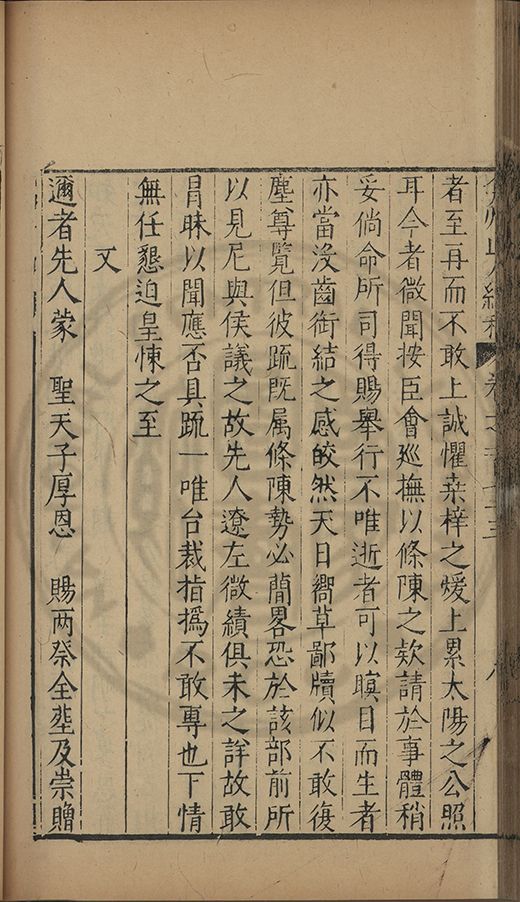 者至再而不敢上誠懼桒梓之煖上累太陽之公照
耳今者微聞按臣會廵撫以條陳之欵請於事體稍
妥倘命所司得賜舉行不唯逝者可以瞑目而生者
亦當沒齒銜結之感皎然天日嚮草鄙牘似不敢復
塵尊覽但彼疏既属條陳勢必簡畧恐於該部前所
以見尼與俟議之故先人遼左微績俱未之詳故敢
冐昧以聞應否具疏一唯台裁指撝不敢專也下情
無任懇迫皇悚之至
又
邇者先人蒙 聖天子厚恩 賜两祭全塟及崇贈